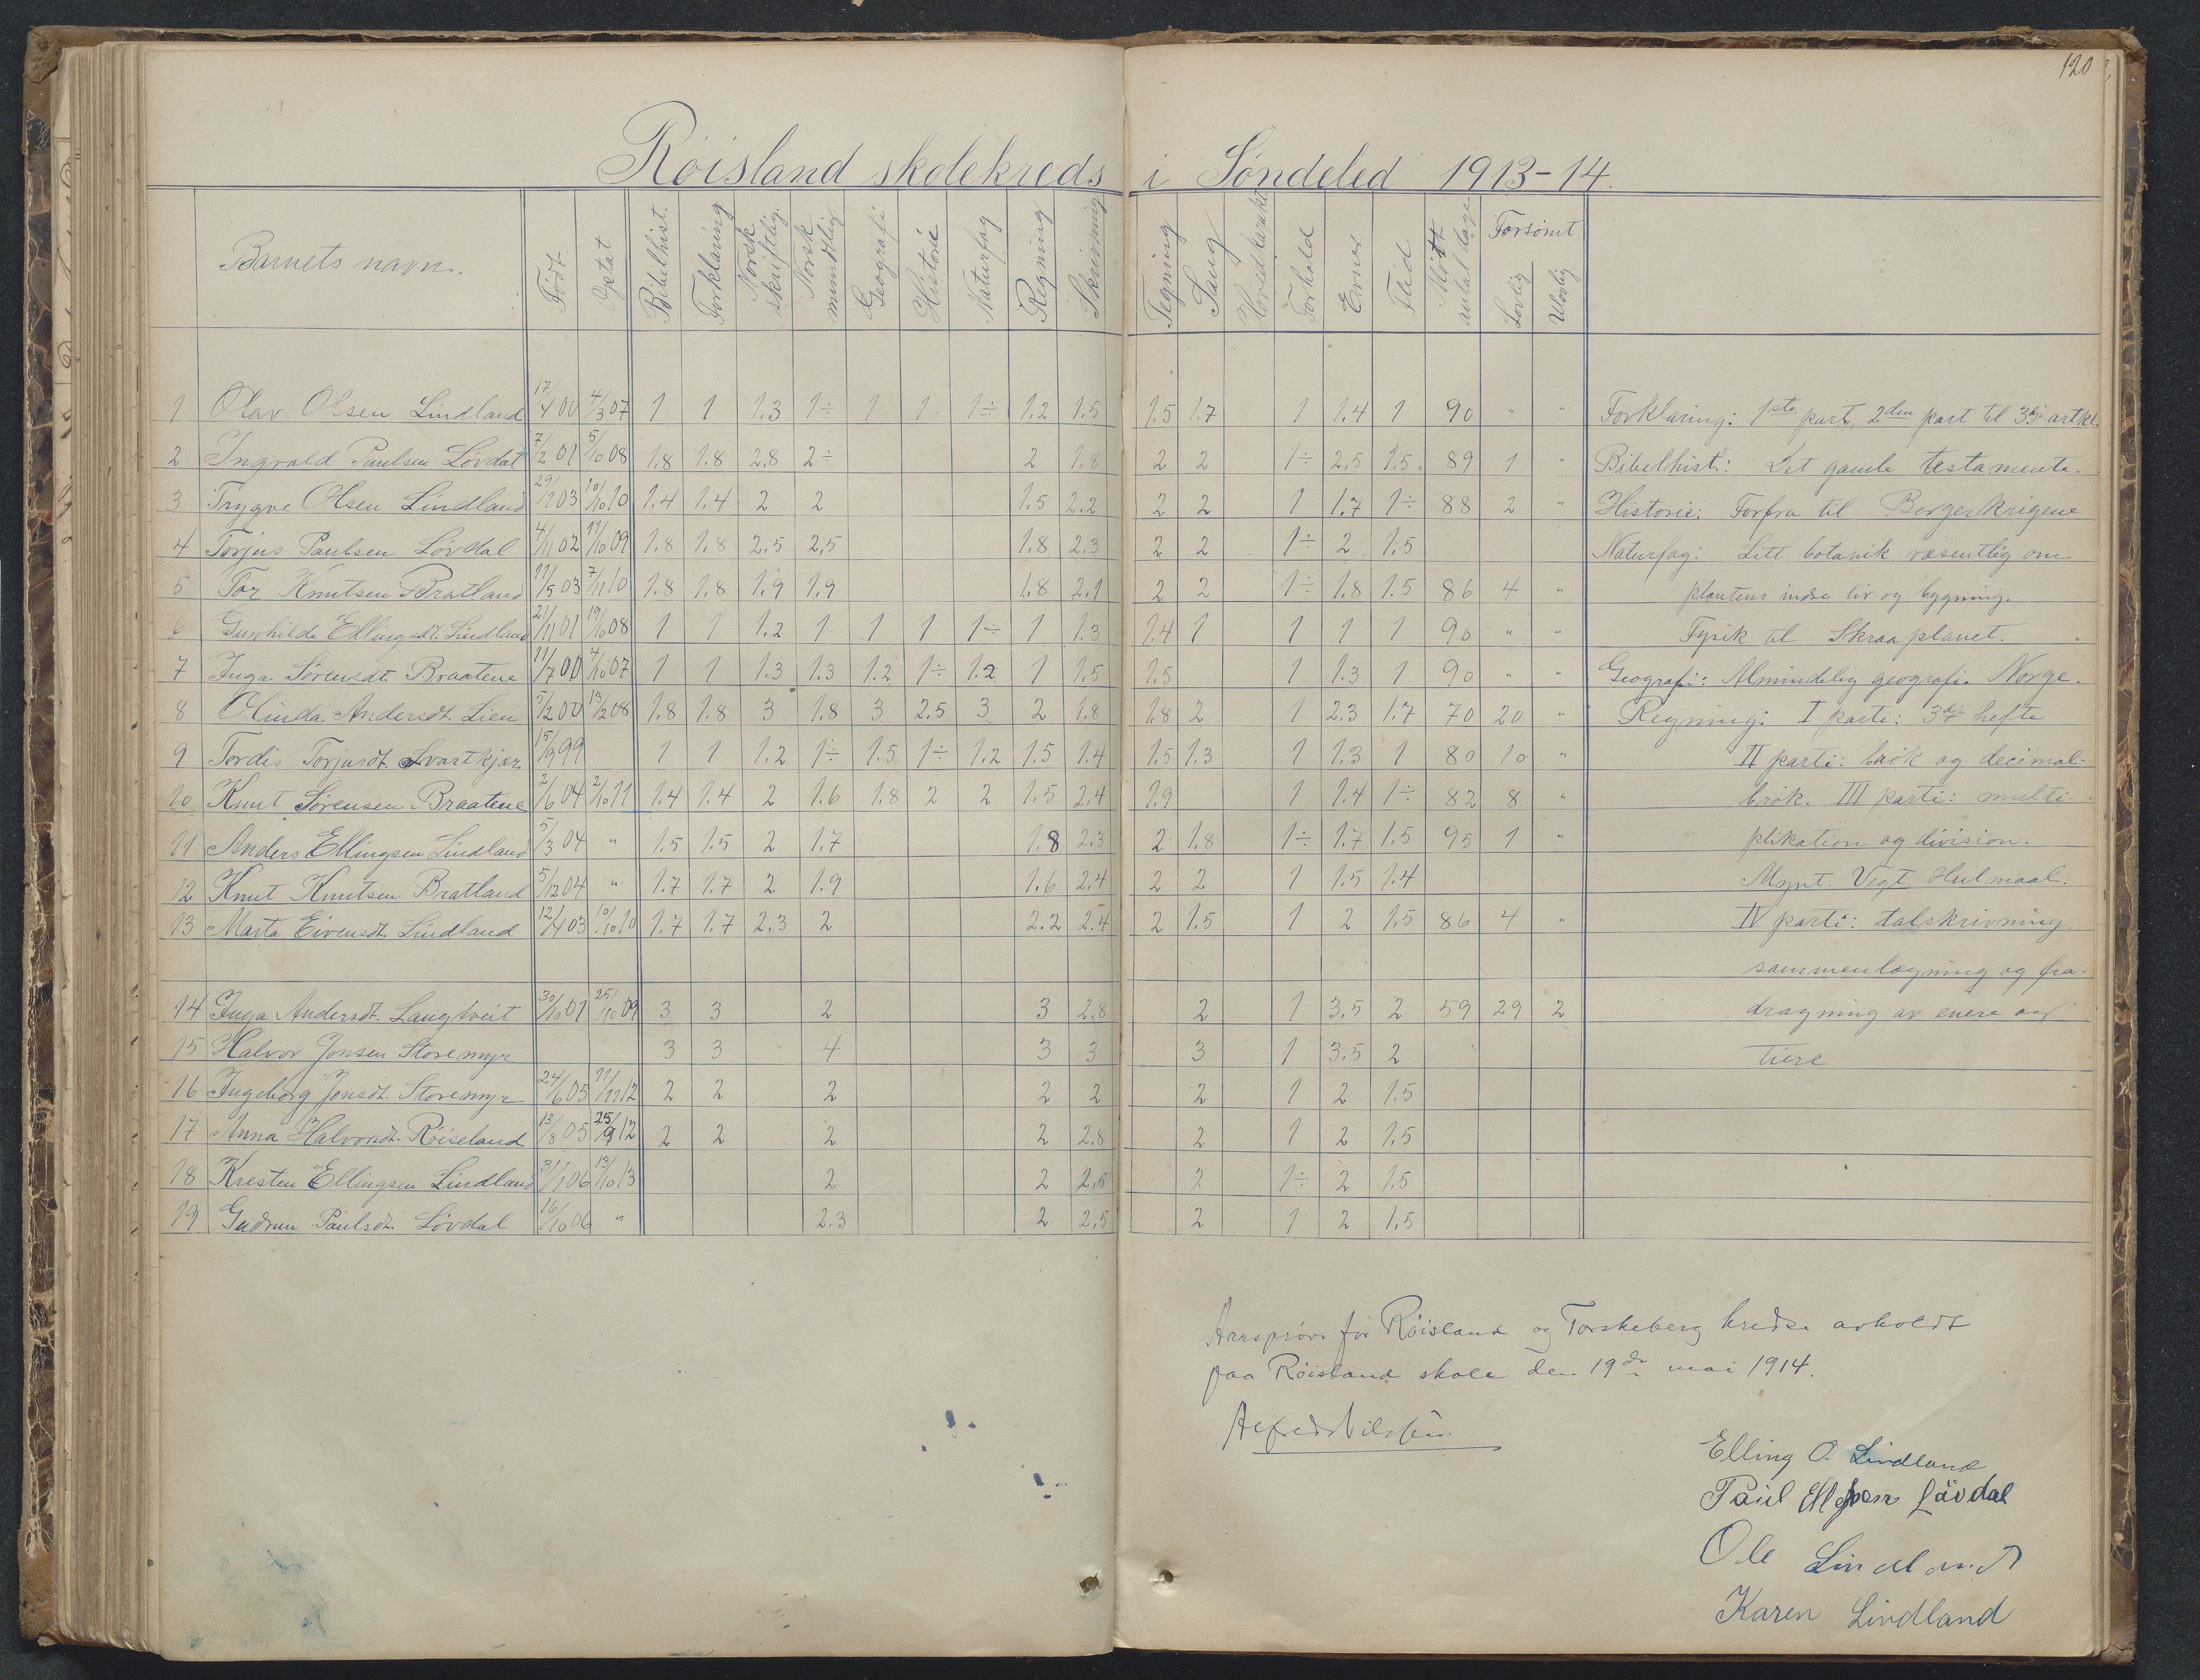 120
Röisland skolekreds i Söndeled 1913-14.
Barnets navn. Födt Optat Bibelhist. Forklaring Norsk skriftlig. Norsk mundtlig Geografi Historie Naturfag Regning Skrivning Tegning Sang Hovedkarakt. Forhold Evner Flid Mött antal dage Forsömt Lovlig Ulovlig
1 Olav Olsen Lindland 17/4 00 4/3 07 1 1 1.3 1÷ 1 1 1÷ 1.2 1.5 1.5 1.7 1 1.4 1 90 " " Forklaring: 1ste part, 2den part til 3dj artkl.
2 Ingvald Paulsen Lövdal 7/2 01 5/10 08 1.8 1.8 2.8 2÷ 2 1.8 2 2 1÷ 2.5 1.5 89 1 " Bibelhist.: Det gamle testamente.
3 Trygve Olsen Lindland 29/1 03 10/10 10 1.4 1.4 2 2 1.5 2.2 2 2 1 1.7 1÷ 88 2 " Historie: Forfra til Borgerkrigene
4 Torjus Paulsen Lövdal 4/11 02 11/10 09 1.8 1.8 2.5 2,5 1.8 2.3 2 2 1÷ 2 1.5 Naturfag: Litt botanik væsentlig om
5 Tor Knutsen Bratland 11/5 03 7/11 10 1.8 1.8 1.9 1.9 1.8 2.1 2 2 1÷ 1.8 1.5 86 4 " plantens indre liv og bygning.
6 Gunhilde Ellingsdt. Lindland 21/11 01 19/10 08 1 1 1.2 1 1 1 1÷ 1 1.3 1.4 1 1 1 1 90 " " Fysik til Skraaplanet.
7 Inga Sörensdt. Braatene 11/7 00 4/10 07 1 1 1.3 1.3 1.2 1÷ 1.2 1 1.5 1.5 1 1.3 1 90 " " Geografi: Almindelig geografi. Norge.
8 Olinda Andersdt. Lien 5/2 00 13/2 08 1.8 1.8 3 1.8 3 2.5 3 2 1.8 1.8 2 1 2.3 1.7 70 20 " Regning: I parti: 3dje hefte
9 Tordis Torjusdt. Svartkjær 15/9 99 1 1 1.2 1÷ 1.5 1÷ 1.2 1.5 1.4 1.5 1.3 1 1.3 1 80 10 " II parti: brök og decimal-
10 Knut Sörensen Braatene 2/6 04 2/10 11 1.4 1.4 2 1.6 1.8 2 2 1.5 2.4 1.9 1 1.4 1÷ 82 8 " brök. III parti: multi-
11 Anders Ellingsen Lindland 5/3 04 " 1.5 1.5 2 1.7 1.8 2.3 2 1.8 1÷ 1.7 1.5 95 1 " plikation og division.
12 Knut Knutsen Bratland 5/12 04 " 1.7 1.7 2 1.9 1.6 2.4 2 2 1 1.5 1.4 Mynt. Vegt. Hulmaal.
13 Marta Eivensdt. Lindland 12/1 03 10/10 10 1.7 1.7 2.3 2 2.2 2.4 2 1.5 1 2 1.5 86 4 " IV parti: talskrivning,
sammenlægning og fra-
14 Inga Andersdt. Langtveit 30/10 01 25/10 09 3 3 2 3 2.8 2 1 3.5 2 59 29 2 dragning av enere og
15 Halvor Jonsen Storemyr 3 3 4 3 3 3 1 3.5 2 tiere
16 Ingeborg Jonsdt. Storemyr 24/6 05 11/11 12 2 2 2 2 2 2 1 2 1.5
17 Anna Halvorsdt. Röiseland 13/8 05 25/9 12 2 2 2 2 2.8 2 1 2 1.5
18 Kresten Ellingsen Lindland 31/1 06 13/10 13 2 2 2,5 2 1÷ 2 1.5
19 Gudrun Paulsdt. Lövdal 16/10 06 " 2.3 2 2,5 2 1 2 1.5
Aarspröve for Röisland og Torskeberg kredse avholdt
paa Röisland skole den 19de mai 1914.
Alfred Nilssen.
Elling O. Lindland
Paul Lövdal
Ole Lindland
Karen Lindland